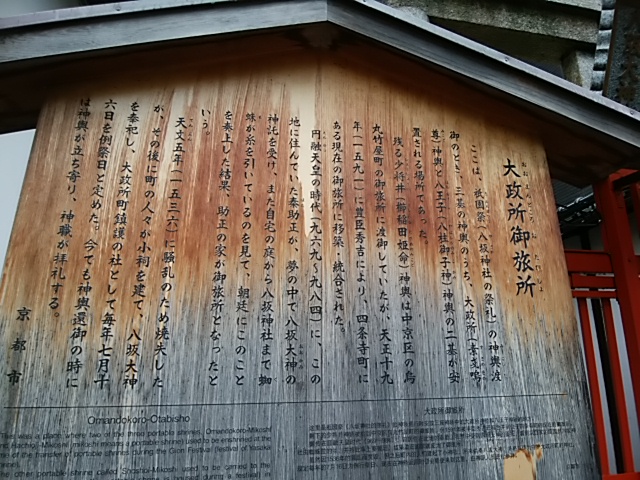 大政所御旅所
おおまんどころおたびしょ
ここは、祇園祭（八坂神社の祭礼）の神輿渡
御のとき、三基の神輿のうち、大政所（素戔嗚
尊）神輿と八王子（八柱御子神）神輿の二基が安
置される場所であった。
残る少将井（櫛稲田姫命）神輿は中京区の烏
丸竹屋町の御旅所に渡御していたが、天正十九
年（一五九一）に豊臣秀吉により、四条寺町に
ある現在の御旅所に移築・統合された。
円融天皇の時代（九六九～九八四）に、この
地に住んでいた秦助正が、夢の中で八坂大神の
神託を受け、また自宅の庭から八坂神社まで蜘
蛛が糸を引いているのを見て、朝廷にこのこと
を奏上した結果、助正の家が御旅所となったと
いう。
天文五年（一五三六）に騒乱のため焼失した
が、その後に町の人々が小祠を建て、八坂大神
を奉祀し、大政所町鎮護の社として毎年七月十
六日を例祭日と定めた。今でも神輿還御の時に
は神輿が立ち寄り、神職が拝礼する。
京都市
Ōmandokoro-Otabisho
This was a place where two of the three portable shrines, Omandokoro-Mikoshi
and Hachioji-Mikoshi (mikoshi means a portable shrine) used to be enshrined at the
time of the transfer of portable shrines during the Gion Festival (festival of Yasaka
Shrine).
The other portable shrine called Shoshoi-Mikoshi used to be carried to the
大政所御旅所